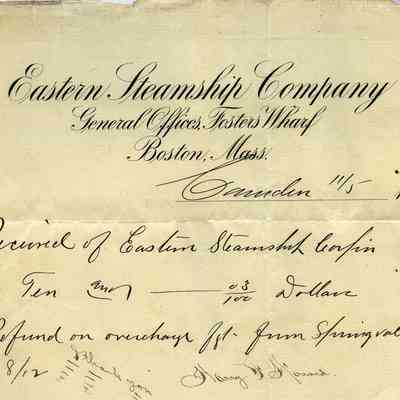 Eastern Steamship Company
General Offices, Fosters Wharf
Boston, Mass.
Camden 11/5
eceived of Eastern Steamship Corp'n
Ten and 03/100 Dollars
Refund on overcharge frt. from Springval
8/12